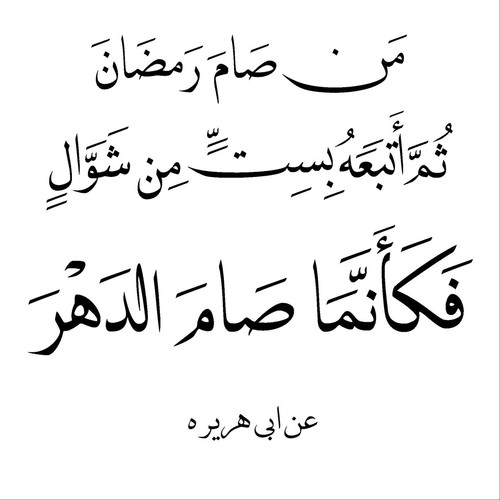 مَن صَامَ رَمَضَانَ
ثُمَّ أَتبَعَهُ بِسِتٍّ مِن شَوَّالٍ
فَكَأَنَّمَا صَامَ الدَهْرَ
عن ابی هریره